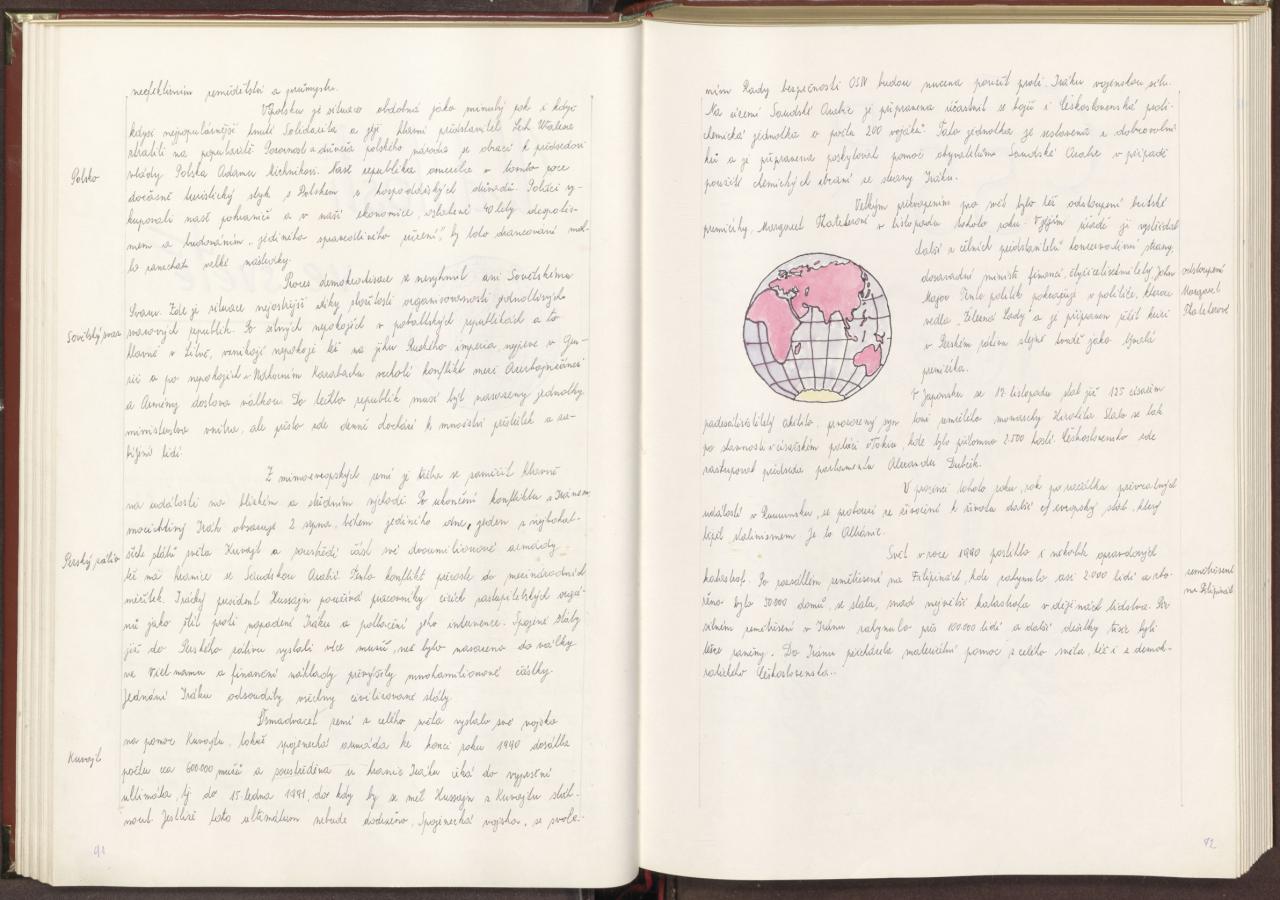 neefektivním zemědělství a průmyslu.
V Polsku je situace obdobná jako minulý rok i když
kdysi nejpopulárnější hnutí Solidarita a její hlavní představitel Lech Walesa
ztratili na popularitě. Pozornost a důvěra polského národa se obrací k předsedovi
vlády Polska Adamu Michnikovi. Naše republika omezila v tomto roce
Polsko
dočasně turistický styk s Polskem z hospodářských důvodů. Poláci vy-
kupovali naše pohraničí a v naší ekonomice, 40 lety
mem a budováním "jediného spravedlivého zřízení", by toto drancování moh-
lo zanechat velké následky.
Proces demokratizace se nevyhnul ani Sovětskému
Svazu. Zde je situace nejostřejší díky ztrátě organizovanosti jednotlivých
Sovětský svaz
svazových republik. Po silných nepokojích v pobaltských republikách a to
hlavně v Litvě, vznikají nepokoje též na jihu Ruského imperia, nejprve v Gru-
zii a po nepokojích v Náhorním Karabachu vzchází konflikt mezi Azerbajdžánci
a Armény doslova válkou. Do těchto republik musí být nasazeny jednotky
ministerstva vnitra, ale přesto zde denně dochází k množství přestřelek a za-
bíjení lidí.
Z mimoevropských zemí je třeba se zaměřit hlavně
na události na blízkém a středním východě. Po ukončení konfliktu s Iránem
mocichtivý Irák obsazuje 2. srpna, během jediného dne, jeden z nejbohat-
Perský záliv
ších států světa Kuvajt a soustředí část své dvoumilionové armády
též na hranice se Saudskou Arabií. Tento konflikt přerostl do mezinárodních
měřítek. Irácký president Hussajn používá pracovníky cizích zastupitelských orgá-
nů jako štít proti napadení Iráku a potlačení jeho intervence. Spojené státy
již do Perského zálivu vyslali více mužů, než bylo nasazeno do války
ve Vietnamu a finanční náklady převýšily mnohamilionové částky.
Jednání Iráku odsoudily všechny civilizované státy.
Osmadvacet zemí z celého světa vyslalo své vojsko
na pomoc Kuvajtu, takže spojenecká armáda ke konci roku 1990 dosáhla
Kuvajt
počtu cca 600 000 mužů a soustředěna u hranic Iráku čeká do vypršení
ultimáta, tj. do 15. ledna 1991, do kdy by se měl Hussajn z Kuvajtu stáh-
nout. Jestliže toto ultimátum nebude dodrženo, Spojenecká vojska, se svole-
91
ním Rady bezpečnosti OSN budou nucena použít proti Iráku vojenskou sílu.
Na území Saudské Arabie je připravena účastnit se bojů i Československá proti-
chemická jednotka v počtu 200 vojáků. Tato jednotka je sestavena z dobrovolní-
ků a je připravena poskytovat pomoc obyvatelům Saudské Arabie v případě
použití chemických zbraní ze strany Iráku.
Velkým překvapením pro svět bylo též odstoupení britské
premiérky, Margaret Thatcherové v listopadu tohoto roku. V jejím úřadě ji vystřídal
další z čelních představitelů konzervativní strany,
dosavadní ministr financí, čtyřicetisedmiletý John
odstoupení
Major. Tento politik pokračuje v politice, kterou
Margaret
vedla "Železná Lady" a je připraven řešit krizi
Thatcherové
v Perském zálivu stejně tvrdě jako bývalá
premiérka.
V Japonsku se 12. listopadu stal již 125. císařem
padesátišestiletý Akihito, prvorozený syn loni zemřelého monarchy Hirohita. Stalo se tak
po slavnosti v císařském paláci v Tokiu, kde bylo přítomno 2.500 hostů. Československo zde
zastupoval předseda parlamentu Alexander Dubček.
V prosinci tohoto roku, rok po začátku převratných
událostí v Rumunsku, se probouzí ze zoufalství k životu další evropský stát, který
trpěl stalinismem. Je to Albánie.
Svět v roce 1990 postihlo i několik opravdových
katastrof. Po rozsáhlém zemětřesení na Filipínách, kde zahynulo asi 2.000 lidí a zbo-
zemětřesení
řeno bylo 50000 domů, se stala, snad největší katastrofa v dějinách lidstva. Při
na Filipínách
silném zemětřesení v Iránu zahynulo přes 100.000 lidí a další desítky tisíc byli
těžce raněny. Do Iránu přicházela materiální pomoc z celého světa, též i z demok-
ratického Československa.
92